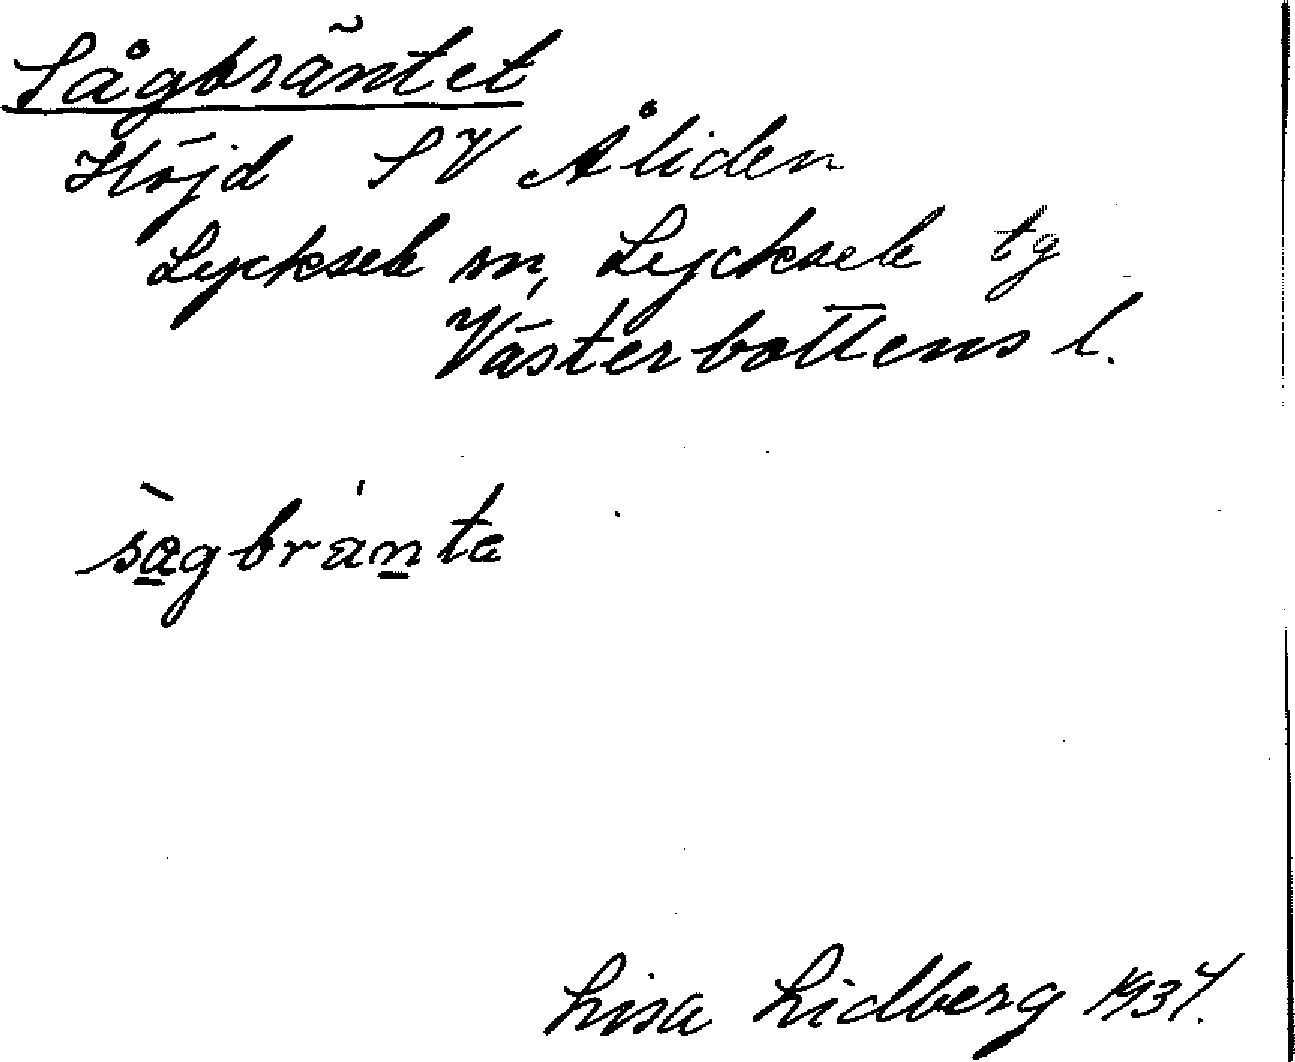 Sågbräntet
Höjd SV Åliden
Lycksele sn, Lycksele tg
Västerbottens l.
sàgbránta
Lisa Lidberg 1937.